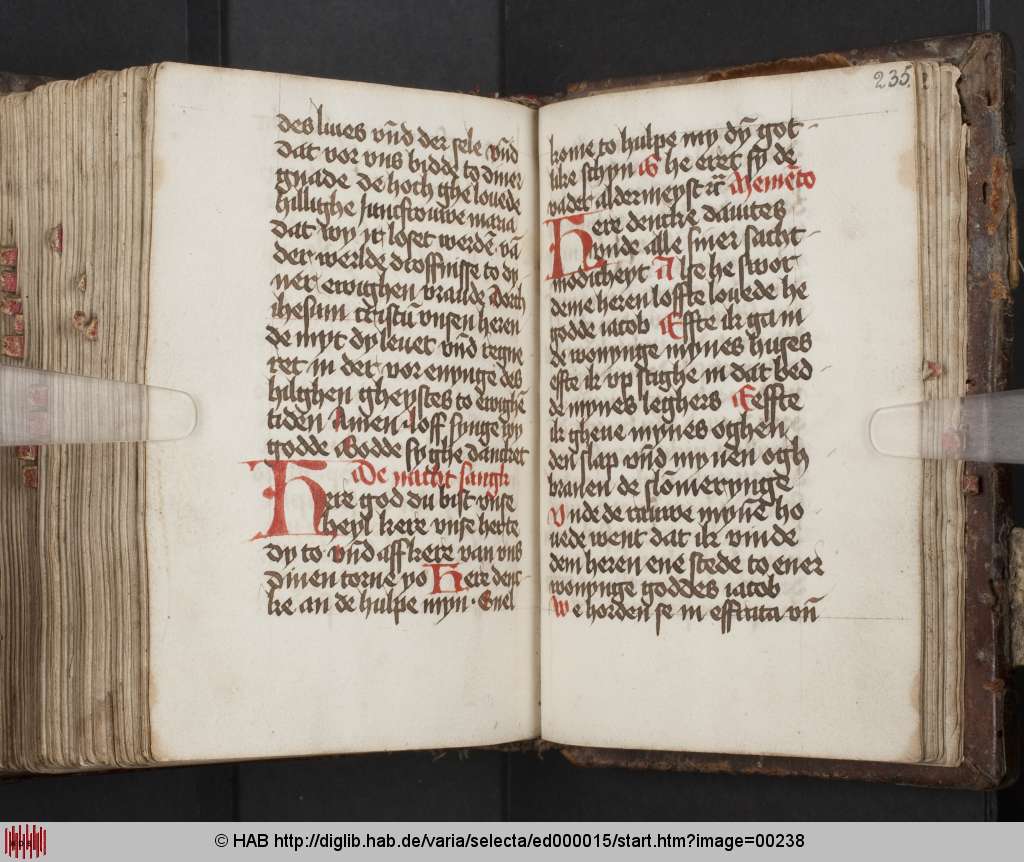 des liues vn̄d der sele vn̄d
dat vor vns bydde to diner
gnade de hoch ghe louede
hillighe Juncfrouwe maria
Dat wy yt loset werdē vā
der werlde droffnisse to dy
ner ewighen vraude Dorch
ihesum cristū vnsen heren
de myt dy leuet vn̄d regne
ret in der vor enynge des
hilghen gheystes to ewighē
tiden Amen Loff synge wy
godde Godde sy ghe dancket
De nacht sangk
Here god du bist vnse
heyl kere vnse herte
dy to vn̄d aff kere van vns
dinen torne yo Here denc
ke an de hulpe myn · Snel
235.
kome to hulpe my dȳ got
like schyn G he eret sy de
vader aldermeyst rc̄ Memēto
Here dencke dauites
vnde alle siner sacht
modicheyt A lse he swor
deme heren loffte louede he
godde iacob Effte ik ga in
de wonynge mynes huses
effte ik vp stighe in dat bed
de mynes leghers Effte
ik gheue mynes oghen
den slap vn̄d mynen ogh
branen de slōmerynge
V nde de rauwe mynē ho
uede went dat ik vinde
dem heren ene stede to ener
wonynge goddes iacob
W e horden se in effrata vn̄
© HAB http://diglib.hab.de/varia/selecta/ed000015/start.htm?image=00238